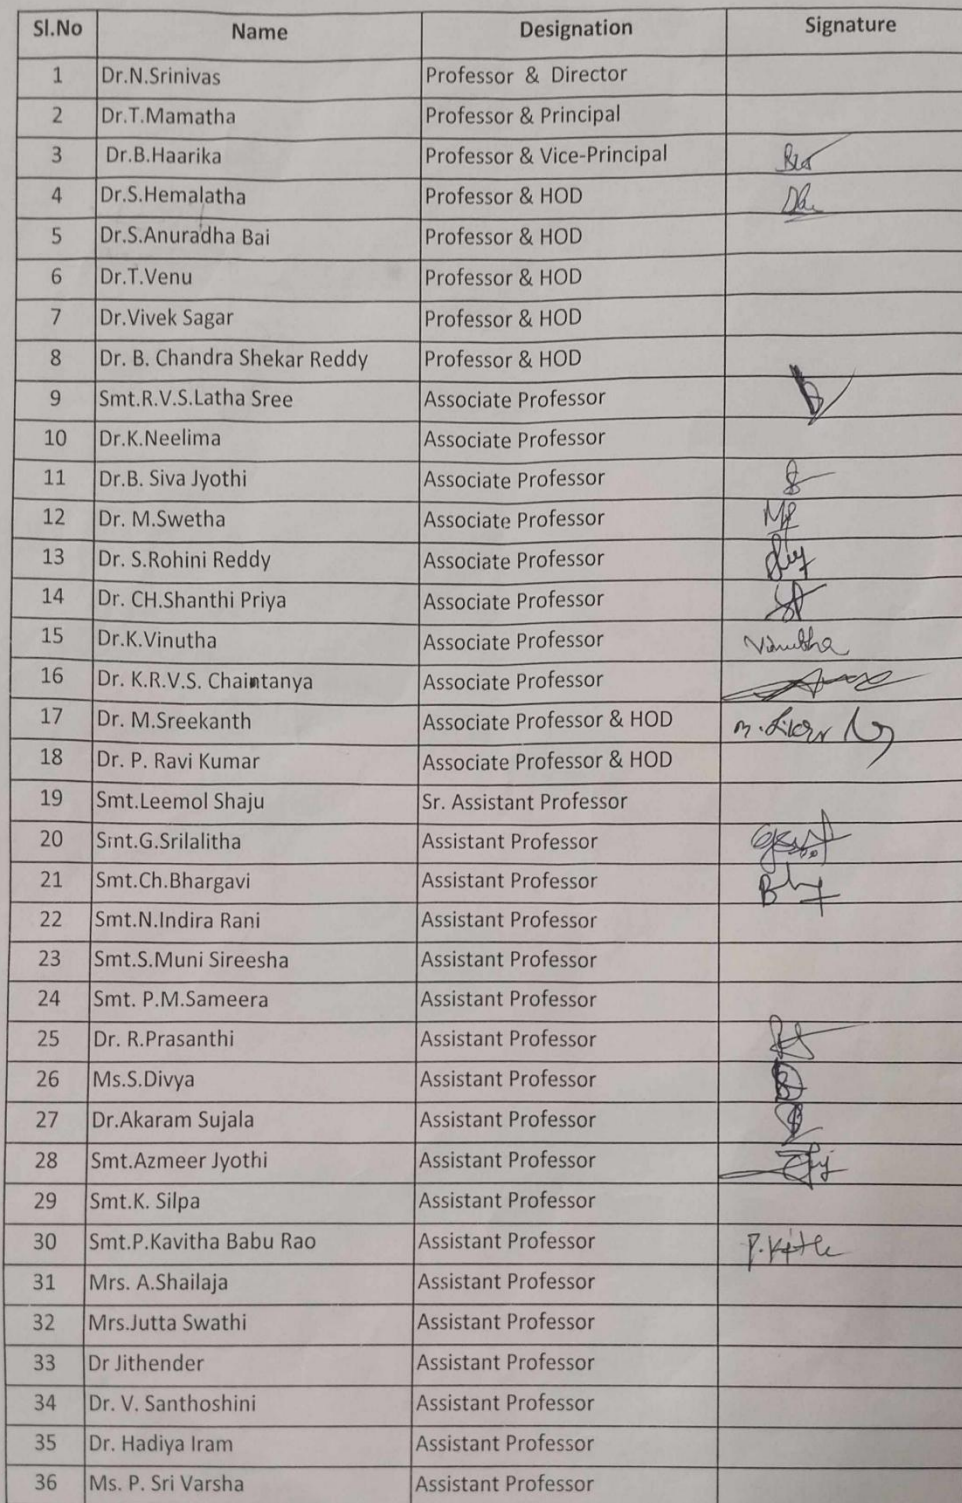 Sl.No Name Designation Signature
1 Dr.N.Srinivas Professor & Director
2 Dr.T.Mamatha Professor & Principal
3 Dr.B.Haarika Professor & Vice-Principal
4 Dr.S.Hemalatha Professor & HOD
5 Dr.S.Anuradha Bai Professor & HOD
6 Dr.T.Venu Professor & HOD
7 Dr.Vivek Sagar Professor & HOD
8 Dr. B. Chandra Shekar Reddy Professor & HOD
9 Smt.R.V.S.Latha Sree Associate Professor
10 Dr.K.Neelima Associate Professor
11 Dr.B. Siva Jyothi Associate Professor
12 Dr. M.Swetha Associate Professor
13 Dr. S.Rohini Reddy Associate Professor
14 Dr. CH.Shanthi Priya Associate Professor
15 Dr.K.Vinutha Associate Professor Vinutha
16 Dr. K.R.V.S. Chaintanya Associate Professor
17 Dr. M.Sreekanth Associate Professor & HOD
18 Dr. P. Ravi Kumar Associate Professor & HOD
19 Smt.Leemol Shaju Sr. Assistant Professor
20 Smt.G.Srilalitha Assistant Professor
21 Smt.Ch.Bhargavi Assistant Professor
22 Smt.N.Indira Rani Assistant Professor
23 Smt.S.Muni Sireesha Assistant Professor
24 Smt. P.M.Sameera Assistant Professor
25 Dr. R.Prasanthi Assistant Professor
26 Ms.S.Divya Assistant Professor
27 Dr.Akaram Sujala Assistant Professor
28 Smt.Azmeer Jyothi Assistant Professor
29 Smt.K. Silpa Assistant Professor
30 Smt.P.Kavitha Babu Rao Assistant Professor
31 Mrs. A.Shailaja Assistant Professor
32 Mrs.Jutta Swathi Assistant Professor
33 Dr Jithender Assistant Professor
34 Dr. V. Santhoshini Assistant Professor
35 Dr. Hadiya Iram Assistant Professor
36 Ms. P. Sri Varsha Assistant Professor